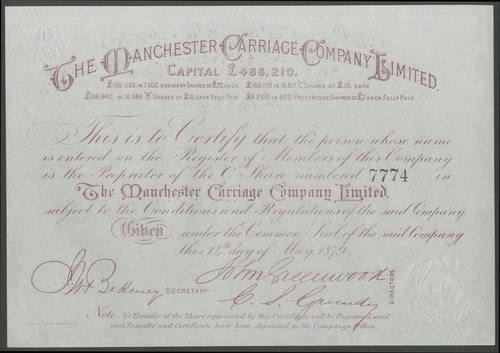 The Manchester Carriage Company Limited.
Capital £486,210,
£150,000 in 7,500 Ordinary Shares of £20 each. £165,170 in 16,517 "C" Shares of £10, each
£166,840, in 16,684 "B" Shares of £10, each fully paid. £4,200 in 600 Preference Shares of £7, each fully paid.
This is to Certify that the person whose name
is entered on the Register of Members of this Company
is the Proprietor of the "C" Share numbered 7774 in
The Manchester Carriage Company Limited,
subject to the Conditions and Regulations of the said Company.
Given under the Common Seal of the said Company
this 14th day of May, 1879.
John Greenwood
SECRETARY
C. S. Grundy
DIRECTORS
Note: No Transfer of the Share represented by this Certificate will be Registered until
such Transfer and Certificate have been deposited in the Company's Office.